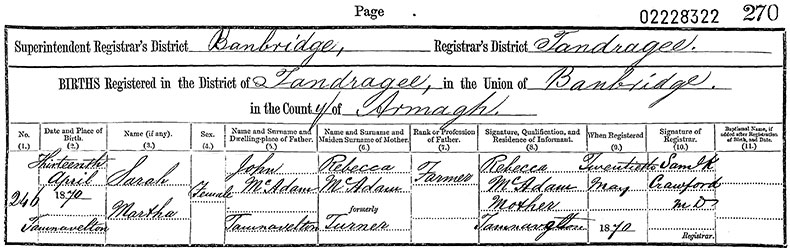 Page 02228322 270
Superintendent Registrar's District Banbridge, Registrar's District Tandragee.
BIRTHS Registered in the District of Tandragee, in the Union of Banbridge.
in the County of Armagh.
No. (1.) Date and Place of Birth. (2.) Name (if any). (3.) Sex. (4.) Name and Surname and Dwelling-place of Father. (5.) Name and Surname and Maiden Surname of Mother. (6.) Rank or Profession of Father. (7.) Signature, Qualification, and Residence of Informant. (8.) When Registered (9.) Signature of Registrar. (10.) Baptismal Name, if added after Registration of Birth, and Date. (11.)
Thirteenth John Rebecca Rebecca Twentieth Saml K
April Sarah McAdam McAdam Farmer McAdam May Crawford
1870 Female Mother M D
246 Martha formerly
Tamnavelton Tamnavelton Turner Tamnavelton 1870 Registrar.